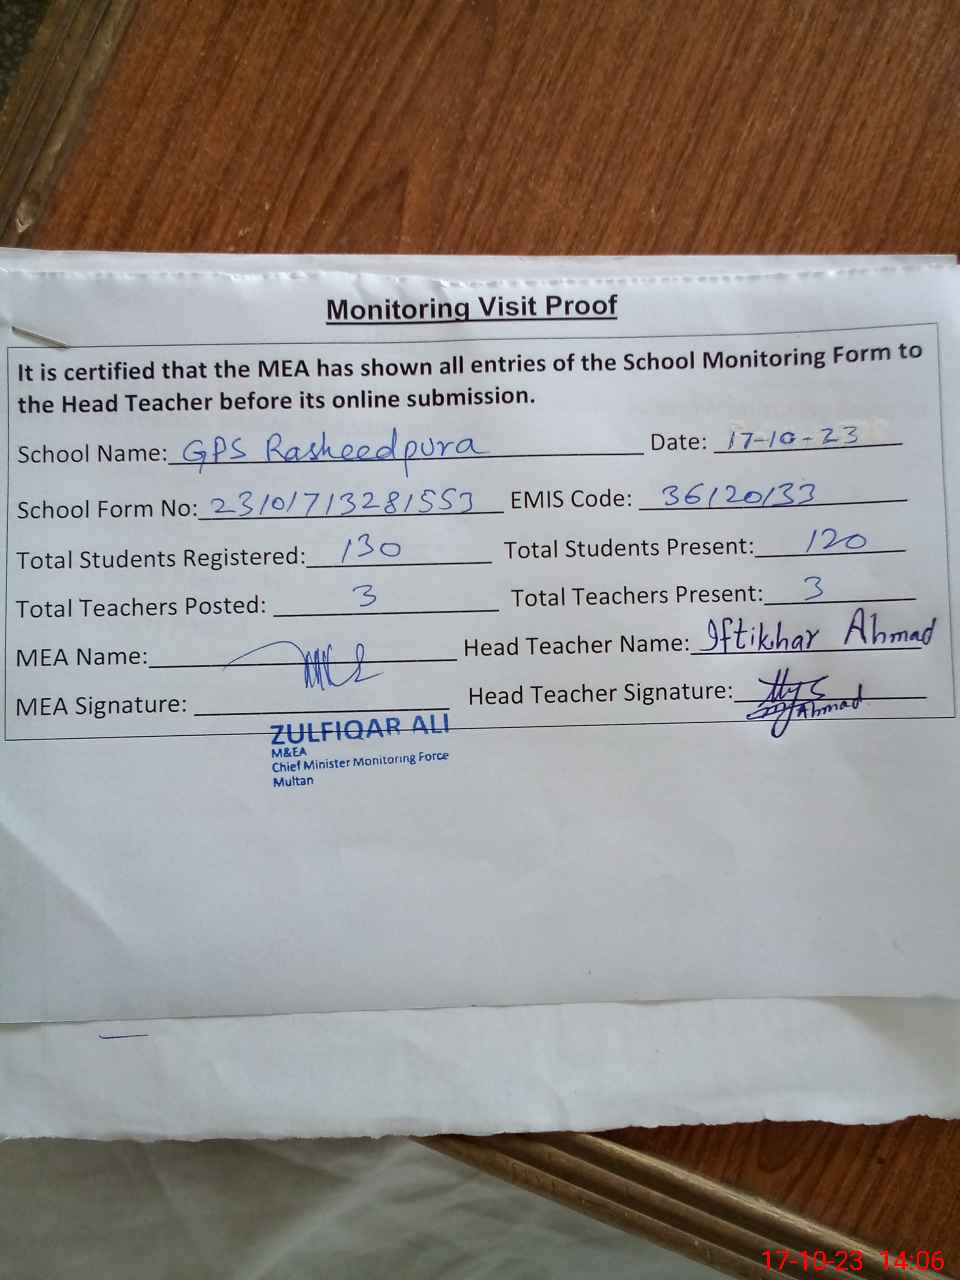 Monitoring Visit Proof
It is certified that the MEA has shown all entries of the School Monitoring Form to
the Head Teacher before its online submission.
School Name: GPS Rasheedpura Date: 17-10-23
School Form No: 23101713281553 EMIS Code: 36120133
Total Students Registered: 130 Total Students Present: 120
Total Teachers Posted: 3 Total Teachers Present: 3
MEA Name: Head Teacher Name: Iftikhar Ahmad
MEA Signature: Head Teacher Signature: Ahmad
ZULFIQAR ALI
M&EA
Chief Minister Monitoring Force
Multan
17-10-23 14:06